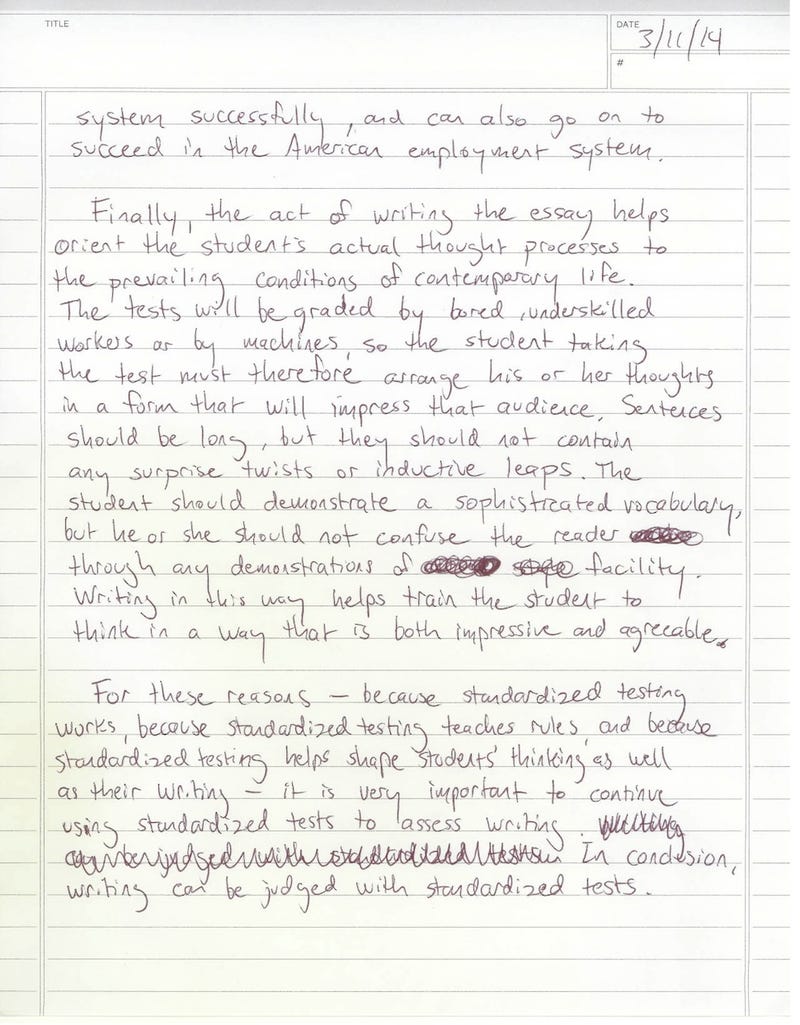 TITLE
DATE
3/11/14
#
system successfully, and can also go on to
succeed in the American employment system.
Finally, the act of writing the essay helps
orient the student's actual thought processes to
the prevailing conditions of contemporary life.
The tests will be graded by bored, underskilled
workers or by machines, so the student taking
the test must therefore arrange his or her thoughts
in a form that will impress that audience. Sentences
should be long, but they should not contain
any surprise twists or inductive leaps. The
student should demonstrate a sophisticated vocabulary,
but he or she should not confuse the reader
through any demonstrations of facility.
Writing in this way helps train the student to
think in a way that is both impressive and agreeable.
For these reasons — because standardized testing
works, because standardized testing teaches rules, and because
standardized testing helps shape students' thinking as well
as their writing — it is very important to continue
using standardized tests to assess writing. Writing
can be judged with standardized tests. In conclusion,
writing can be judged with standardized tests.